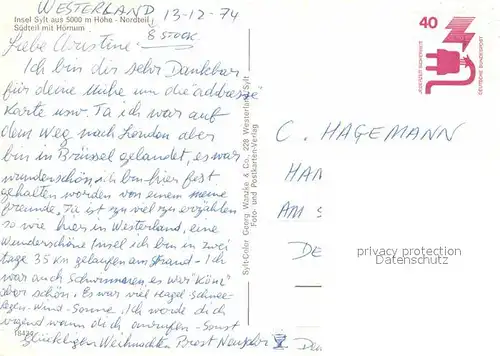 WESTERLAND 13-12-74
Insel Sylt aus 5000 m Höhe - Nordteil
Südteil mit Hörnum
8 STOCK
Liebe Christine
Ich bin dir sehr Dankbar
für deine Mühe um die "addresse"
Karte usw. Ta ich war auf
dem Weg nach London aber
bin in Brüssel gelandet, es war
wunderschön ich bin hier fest
gehalten worden von einem meine
freunde. Ta ist zu viel zu erzählen
so wie hier in Westerland, eine
Wunderschöne Insel ich bin in zwei
tage 35 Km gelaufen am Strand - Ich
war auch Schwimmen es war
aber schön. Es war viel Hagel Schnee-
Regen - Wind - Sonne. Ich werde dich
irgend wann dich anrufen - Sonst
glücklichen Weihnachten Prost Neujahr
18429
Sylt-Color Georg Wanzke & Co., 228 Westerland/Sylt
Foto- und Postkarten-Verlag
40
JEDERZEIT SICHERHEIT
DEUTSCHE BUNDESPOST
C. HAGEMANN
HAM
AM S
DE
privacy protection
Datenschutz